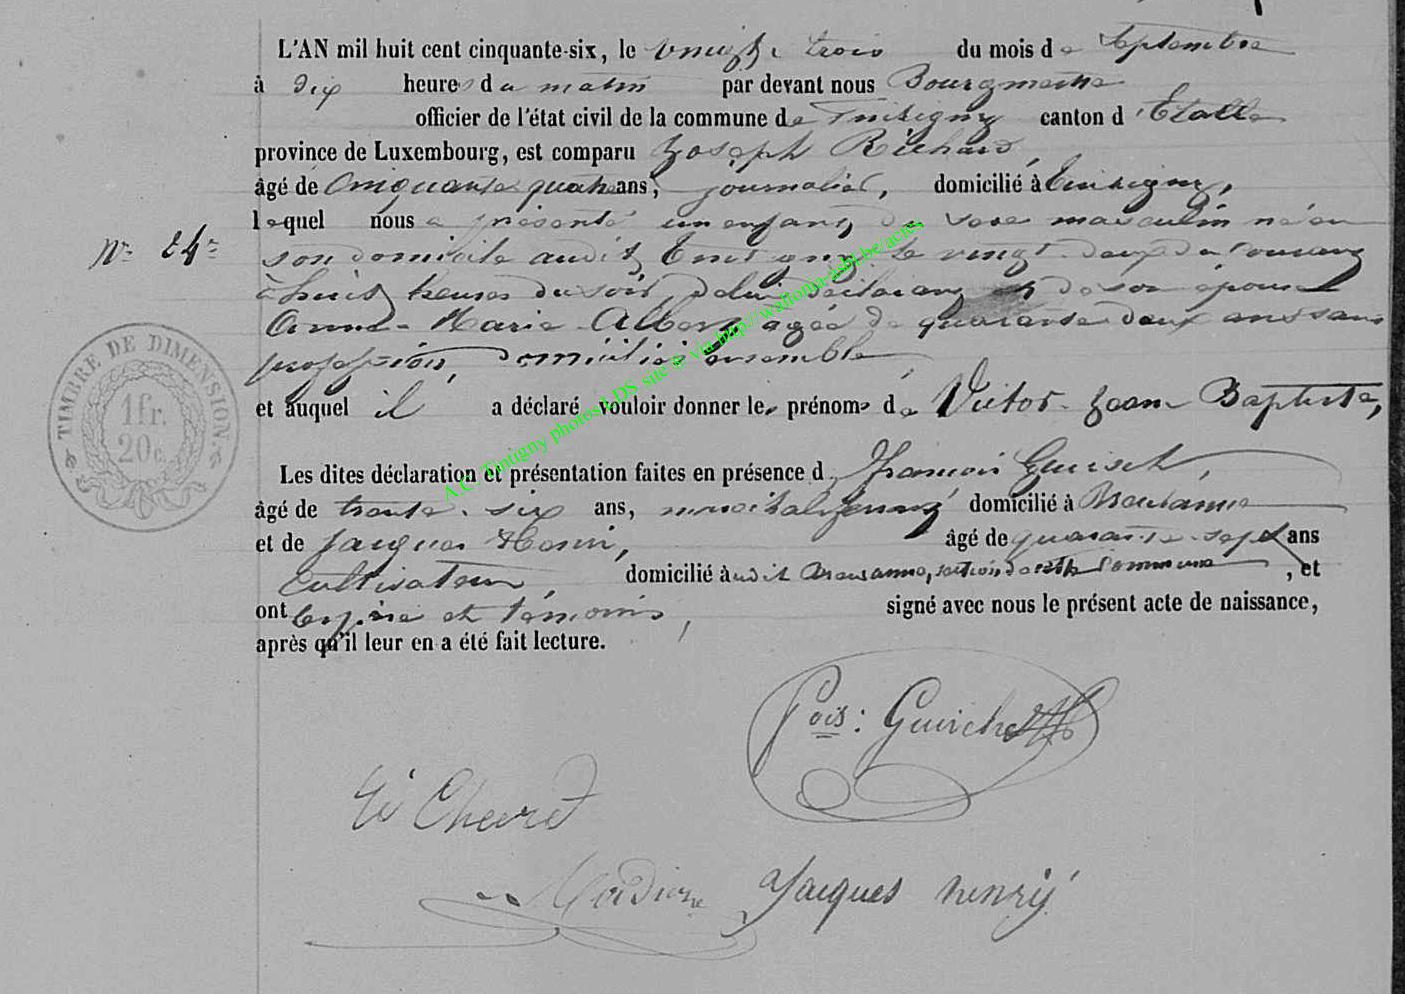 L'AN mil huit cent cinquante-six, le vingt trois du mois de Septembre
à dix heures du matin par devant nous Bourgmestre
officier de l'état civil de la commune de Tintigny canton d'Etalle
province de Luxembourg, est comparu Joseph Richard,
âgé de Cinquante quatre ans, journalier, domicilié à Tintigny,
lequel nous a présenté un enfant de sexe masculin né en
Nº 24
son domicile audit Tintigny le vingt deux du courant
à huit heures du soir, de lui déclarant et de son épouse
Anne-Marie Albert agée de quarante deux ans sans
profession, domiciliés ensemble,
et auquel il a déclaré vouloir donner les prénoms de Victor Jean Baptiste,
TIMBRE DE DIMENSION.
1 fr.
20 c.
Les dites déclaration et présentation faites en présence de François
âgé de trente six ans, domicilié à
et de Jacques âgé de quarante sept ans
Cultivateur, domicilié audit section de cette Commune, et
ont le père et témoins, signé avec nous le présent acte de naissance,
après qu'il leur en a été fait lecture.
A.C. Tintigny photos LDS site © via http://wallonia-asbl.be/actes
Fçois: Guirch
Jacques henry